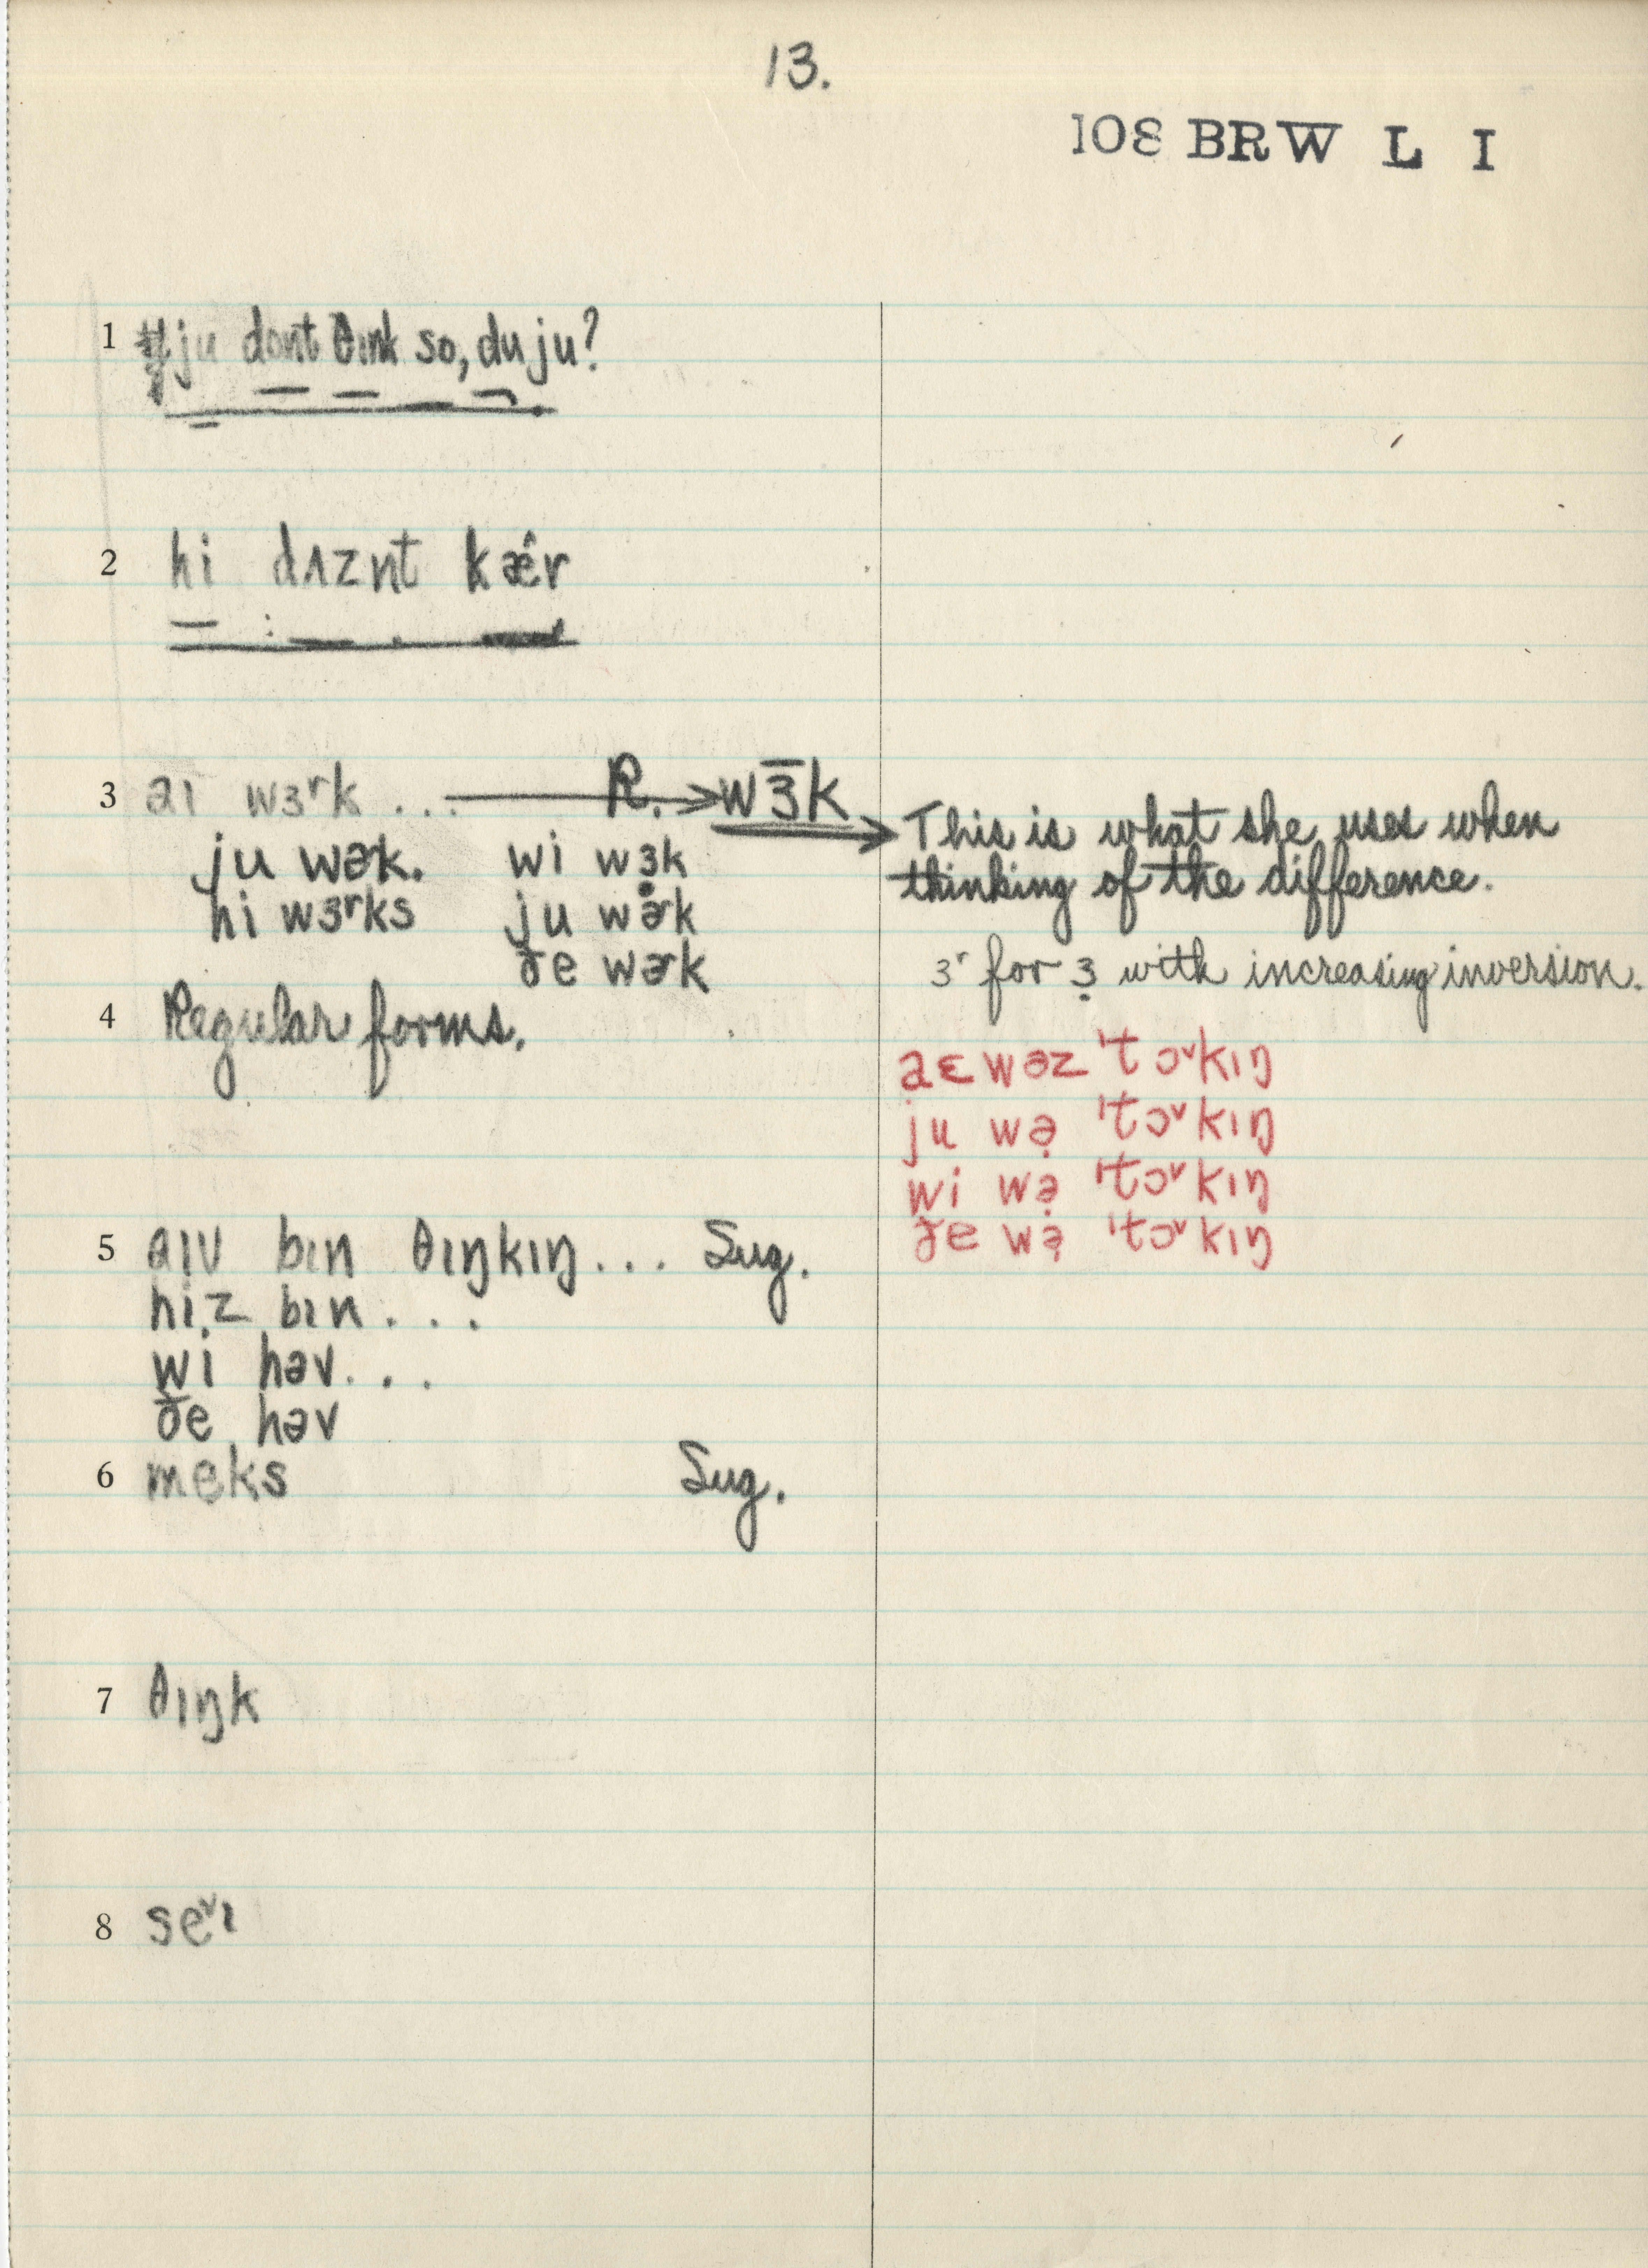 13.
108 BRW L I
1 ju dont θɪnk so, du ju?
2 hi dʌznt kæ´r
3 aɪ wɜʳk ... R. → wɜ̄k → This is what she uses when
ju wɚk. wi wɜ̣k thinking of the difference.
hi wɜʳks ju wɚk
ðe wɚk ɜʳ for ɜ̣ with increasing inversion.
4 Regular forms.
aɛ wəz ˈtɔ˅kɪŋ
ju wə̣ ˈtɔ˅kɪŋ
wi wə̣ ˈtɔ˅kɪŋ
ðe wə̣ ˈtɔ˅kɪŋ
5 aɪv bɪn θɪŋkɪŋ ... Sug.
hi̬z bɪn ...
wi həv ...
ðe həv
6 meks Sug.
7 θɪŋk
8 se˅ɪ